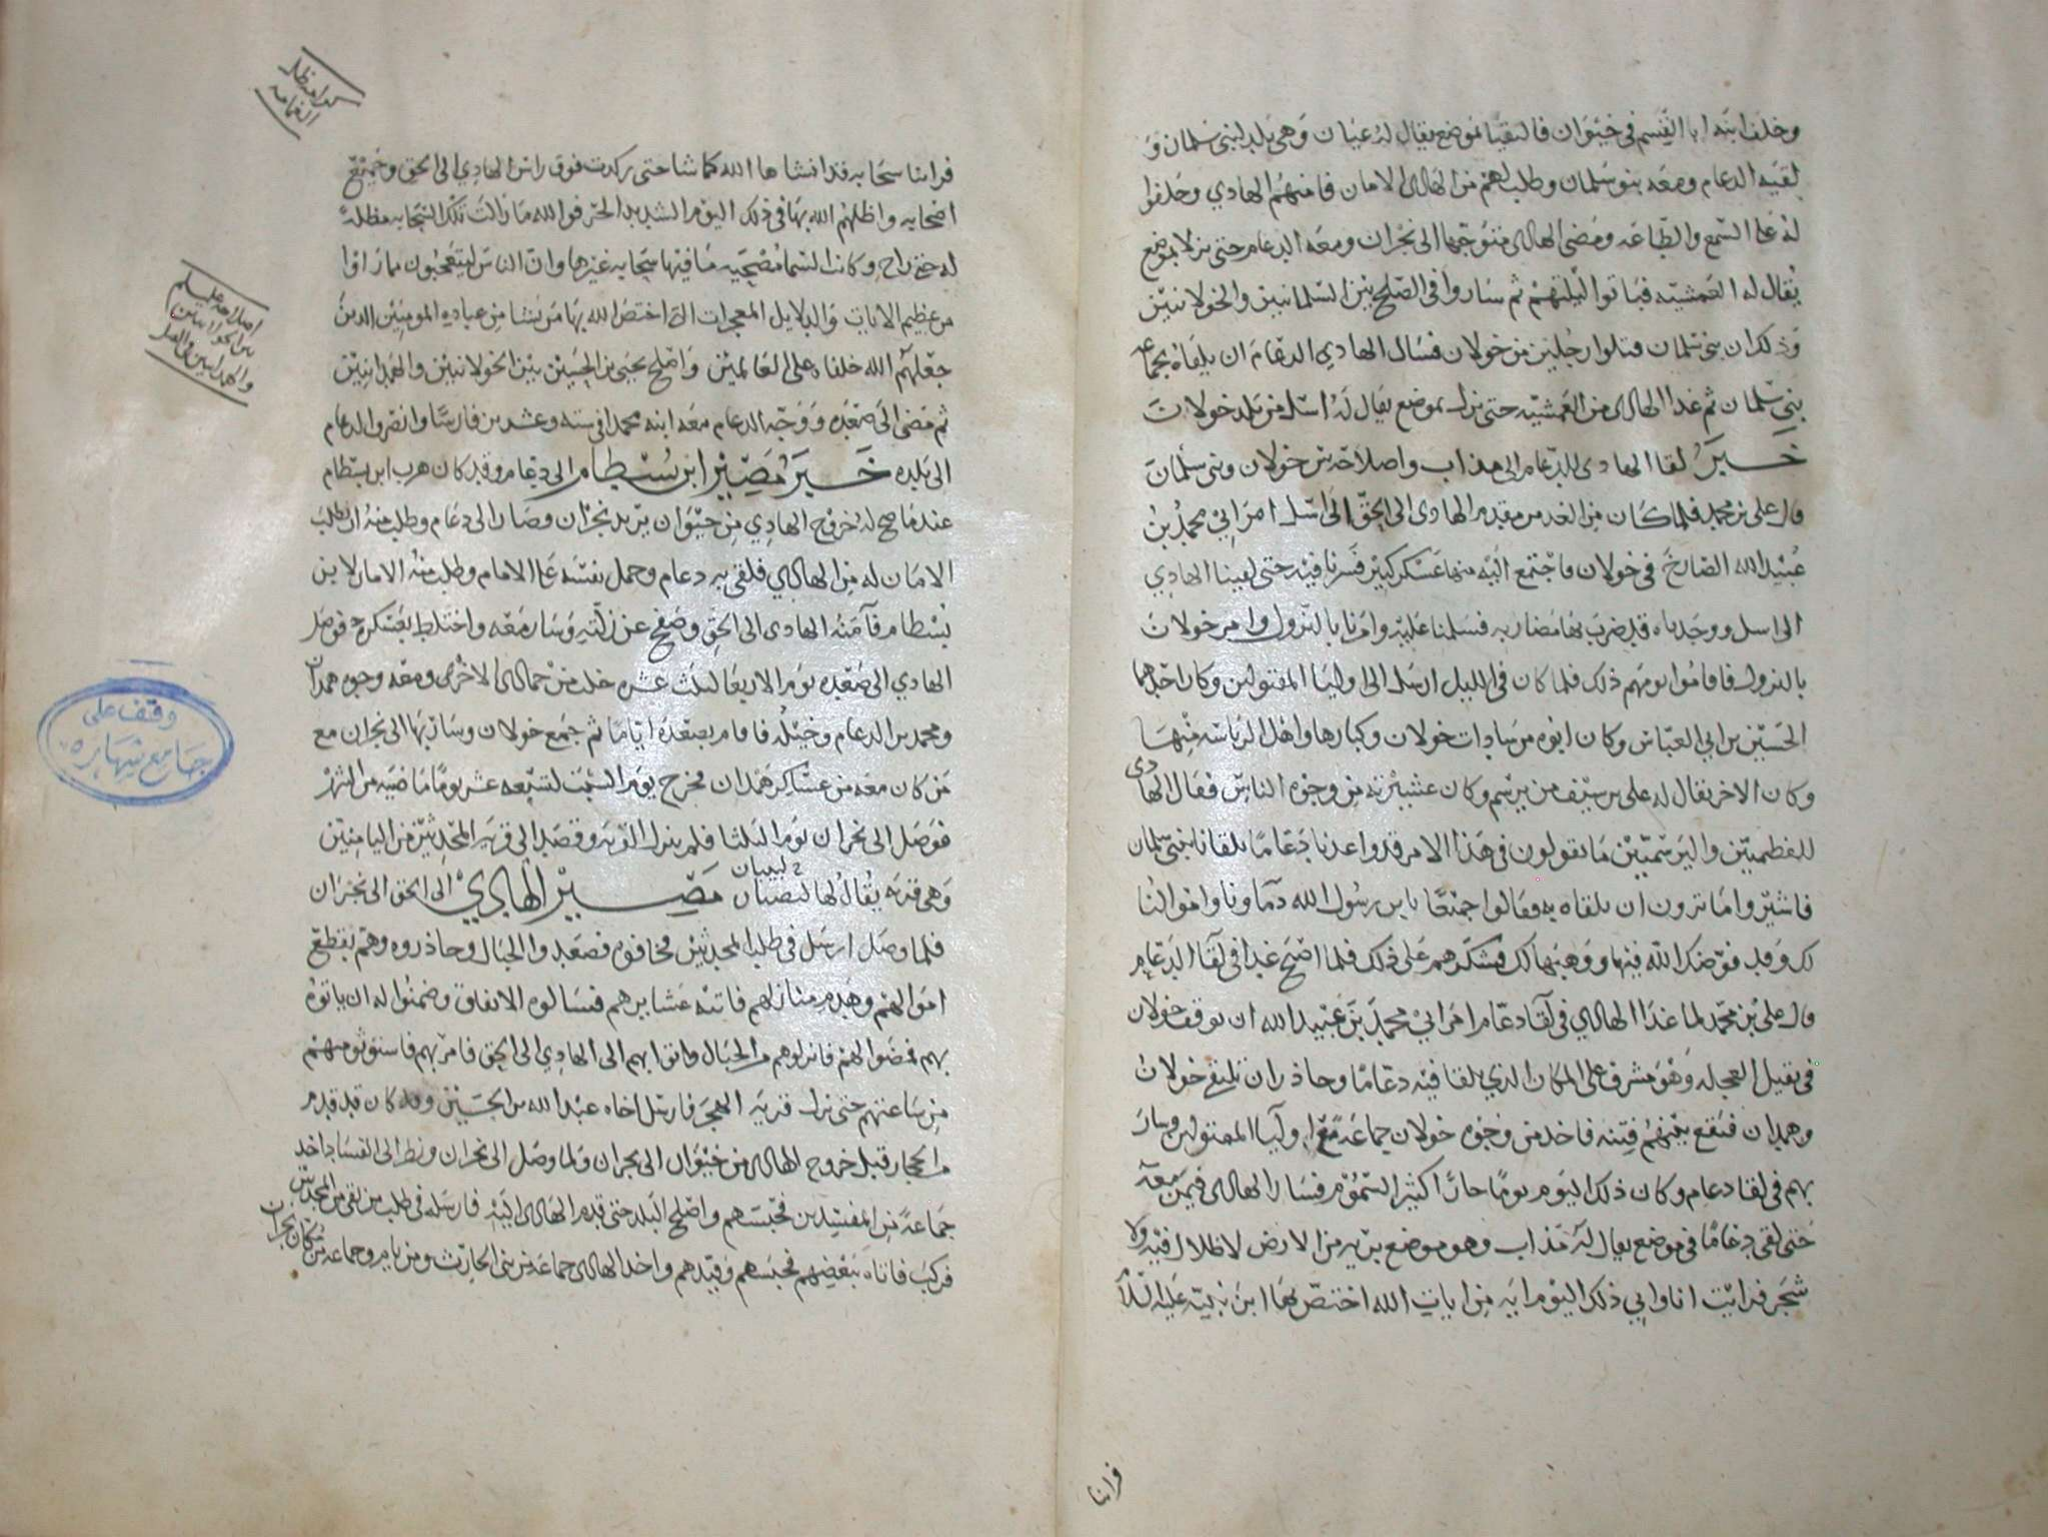 وخلف ابنه ابا القسم في خيوان فالتقيا بموضع يقال له عيان وهي بلد لبني سلمان و
لقيه الدعام ومعه بنو سلمان وطلب لهم من الهادي الامان فامنهم الهادي وحلفوا
له على السمع والطاعه ومضى الهادي متوجها الى نجران ومعه الدعام حتى نزلا بموضع
يقال له العمشيه فباتوا ليلتهم ثم ساروا في الصلح بين السلمانيين والخولانيين
وذلك ان بني سلمان قتلوا رجلين من خولان فسال الهادي الدعام ان يلقاه بجماعه
بني سلمان ثم غدا الهادي من العمشيه حتى نزل بموضع يقال له اسل من بلد خولان
خبر لقا الهادي للدعام الى مذاب واصلاحه بين خولان وبني سلمان
قال علي بن محمد فلما كان من الغد من مقدم الهادي الى الحق الى اسل امر ابي محمد بن
عبيد الله الصارخ في خولان فاجتمع اليه منها عسكر كبير فسرنا فيه حتى لقينا الهادي
الى اسل ووجدناه قد ضرب بها مضاربه فسلمنا عليه وامرنا بالنزول وامر خولان
بالنزول فاقاموا يومهم ذلك فلما كان في الليل ارسل الى اوليا المقتولين وكان احدهما
الحسين بن ابي العباس وكان ابوه من سادات خولان وكبارها واهل الرياسه منها
وكان الاخر يقال له علي بن سيف من يرسم وكان عشيرته من وجوه الناس فقال الهادي
للفطميين واليرسميين ما تقولون في هذا الامر قد واعدنا دعاما يلقانا ببني سلمان
فاشيروا ما ترون ان نلقاه به فقالوا جميعا يابن رسول الله دمآونا واموالنا
لك وقد فوضك الله فيها ووهبناها لك فشكرهم على ذلك فلما اصبح غدا في لقآ الدعام
قال علي بن محمد لما غدا الهادي في لقآ دعام امر ابي محمد بن عبيد الله ان توقف خولان
في نقيل العجله وهو مشرف على المكان الذي يلقا فيه دعاما وحاذر ان تلتقي خولان
وهمدان فتقع بينهم فتنه فاخذ من وجوه خولان جماعة مع اوليآ المقتولين وسار
بهم في لقا دعام وكان ذلك اليوم يوما حارا كثير السموم فسار الهادي فيمن معه
حتى لقي دعاما في موضع يقال له مذاب وهو موضع بريه من الارض لا ظلال فيه ولا
شجر فرايت انا وابي ذلك اليوم ايه من ايات الله اختص بها ابن نبيه عليه السلام
فراينا
فراينا سحابه قد انشاها الله كما شا حتى ركدت فوق راس الهادي الى الحق وجميع
اصحابه واظلهم الله بها في ذلك اليوم الشديد الحر فوالله ما زالت تلك السحابه مظلة
له حتى راح وكانت السما مصحيه ما فيها سحابه غيرها وان الناس ليتعجبون مما راوا
من عظيم الايات والدلايل المعجزات التي اختص الله بها من يشا من عباده المومنين الذين
جعلهم الله خلفاء على العالمين واصلح يحيى بن الحسين بين الخولانيين والهمدانيين
ثم مضى الى صعده ووجه الدعام معه ابنه محمدا في سته وعشرين فارسا وانصرف الدعام
الى بلده خبر مصير ابن بسطام الى دعام وقد كان هرب ابن بسطام
عندما صح له خروج الهادي من خيوان يريد نجران وصار الى دعام وطلب منه ان يطلب
الامان له من الهادي فلقي به دعام وحمل نفسه على الامام وطلب منه الامان لابن
بسطام فآمنه الهادي الى الحق وصفح عن زلته وسار معه واختلط بعسكره فوصل
الهادي الى صعده يوم الاربعا لثلث عشره خلت من جمادى الاخرى ومعه وجوه همدان
ومحمد بن الدعام وخيله فاقام بصعده اياما ثم جمع خولان وسار بها الى نجران مع
من كان معه من عساكر همدان فخرج يوم السبت لتسعه عشر يوما ماضيه من الشهر
فوصل الى نجران يوم الثلثا فلم ينزل القريه وقصد الى قريه المحدثين من الياميين
وهي قريه يقال لها لبينان مصير الهادي الى الحق الى نجران
فلما وصل ارسل في طلب المحدثين فخافوه فصعدوا الجبال وحاذروه وهم بقطع
اموالهم وهدم منازلهم فاتته عشايرهم فسالوه الانفاق وضمنوا له ان ياتوه
بهم فمضوا لهم فانزلوهم من الجبال واتوا بهم الى الهادي الى الحق فامر بهم فاستوثق منهم
من ساعتهم حتى نزل قريه الهجر فارسل اخاه عبد الله بن الحسين وقد كان قد قدم
من الحجاز قبل خروج الهادي من خيوان الى نجران ولما وصل الى نجران ونظر الى الفساد اخذ
جماعة من المفسدين فحبسهم واصلح البلد حتى قدم الهادي اليه فارسله في طلب من بقي من المحدثين
فركب فاتاه ببعضهم فحبسهم وقيدهم واخذ الهادي جماعة من بني الحارث ومن يام وجماعه من سكان نجران
اصلاحه عليلم
بين الخولانيين
والهمدانيين
وقف على
جامع شهاره